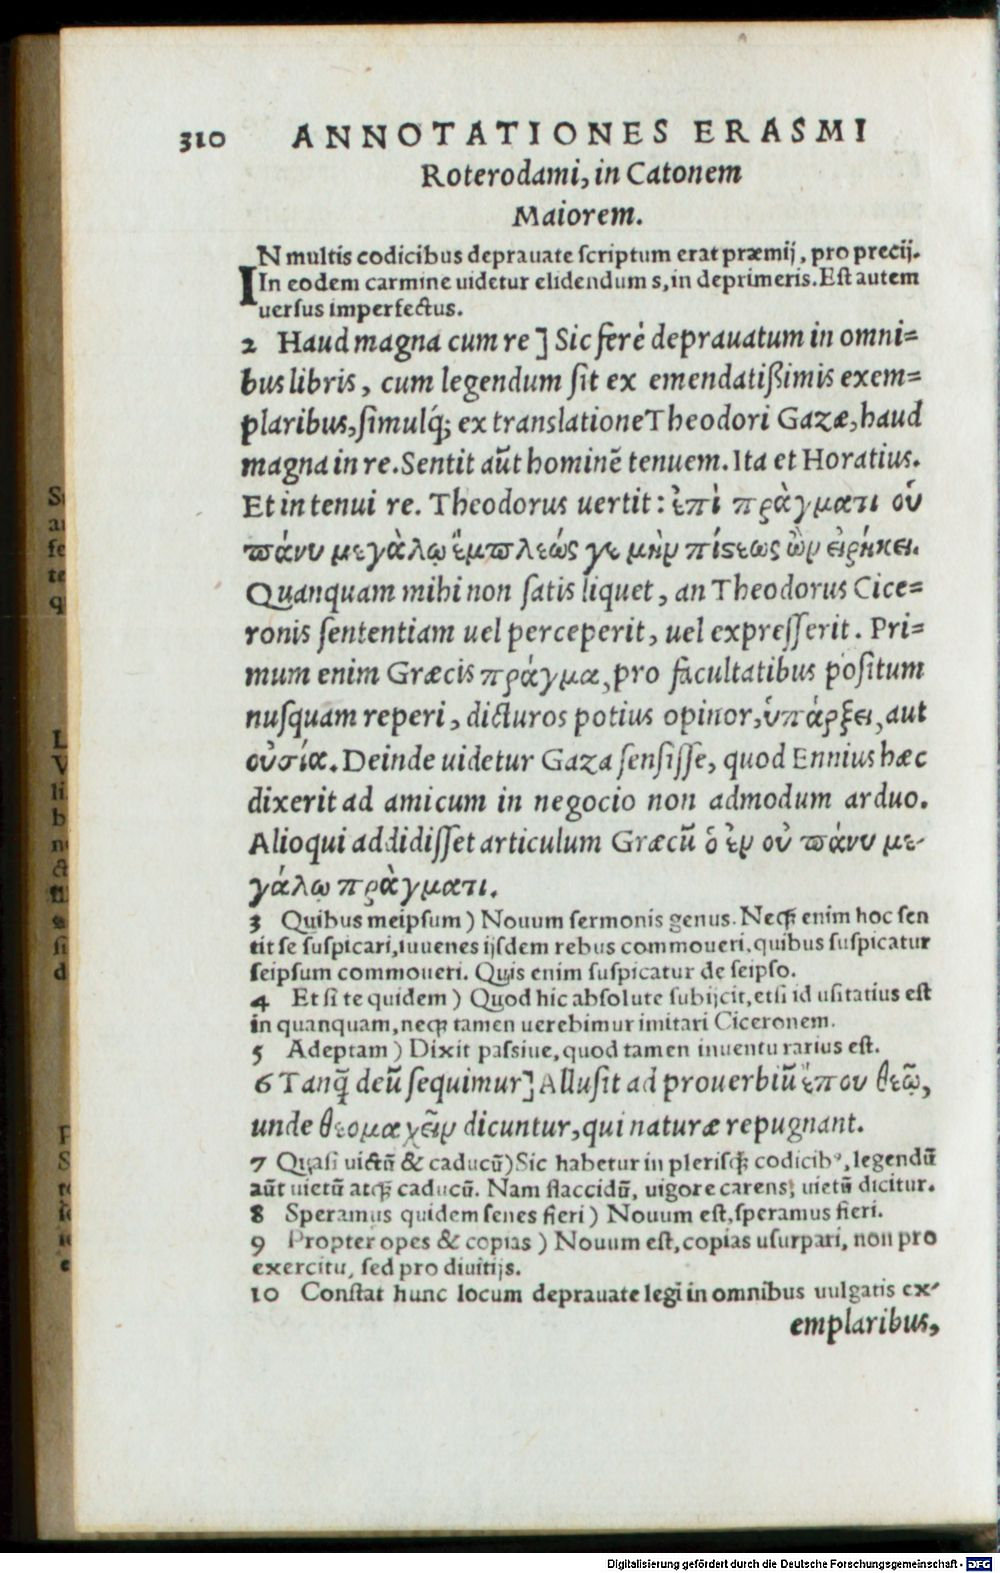 310 ANNOTATIONES ERASMI
Roterodami, in Catonem
Maiorem.
IN multis codicibus deprauate scriptum erat præmij, pro precij.
In eodem carmine uidetur elidendum s, in deprimeris. Est autem
uersus imperfectus.
2 Haud magna cum re ] Sic ferè deprauatum in omni=
bus libris, cum legendum sit ex emendatißimis exem=
plaribus, simulq́; ex translatione Theodori Gazæ, haud
magna in re. Sentit aũt hominẽ tenuem. Ita et Horatius.
Et in tenui re. Theodorus uertit: ἐπὶ πρὰγματι οὐ
πάνυ μεγὰλῳ ἔμπλεώς γε μὴν πίστεως ὢν εἰρήκει.
Quanquam mihi non satis liquet, an Theodorus Cice=
ronis sententiam uel perceperit, uel expresserit. Pri=
mum enim Græcis πράγμα, pro facultatibus positum
nusquam reperi, dicturos potius opinor, ὑπάρξει, aut
οὐσία. Deinde uidetur Gaza sensisse, quod Ennius hæc
dixerit ad amicum in negocio non admodum arduo.
Alioqui addidisset articulum Græcũ ὁ ἐν οὐ πάνυ με-
γάλῳ πρὰγματι.
3 Quibus meipsum ) Nouum sermonis genus. Neq; enim hoc sen
tit se suspicari, iuuenes ijsdem rebus commoueri, quibus suspicatur
seipsum commoueri. Quis enim suspicatur de seipso.
4 Et si te quidem ) Quod hic absolute subijcit, etsi id usitatius est
in quanquam, neq; tamen uerebimur imitari Ciceronem.
5 Adeptam ) Dixit passiue, quod tamen inuentu rarius est.
6 Tanq̃ deũ sequimur] Allusit ad prouerbiũ ἕπου θεῷ,
unde θεομαχεῖν dicuntur, qui naturæ repugnant.
7 Quasi uictũ & caducũ) Sic habetur in plerisq; codicibꝰ, legendũ
aũt uietũ atq; caducũ. Nam flaccidũ, uigore carens, uietũ dicitur.
8 Speramus quidem senes fieri ) Nouum est, speramus fieri.
9 Propter opes & copias ) Nouum est, copias usurpari, non pro
exercitu, sed pro diuitijs.
10 Constat hunc locum deprauate legi in omnibus uulgatis ex-
emplaribus,
Digitalisierung gefördert durch die Deutsche Forschungsgemeinschaft - DFG